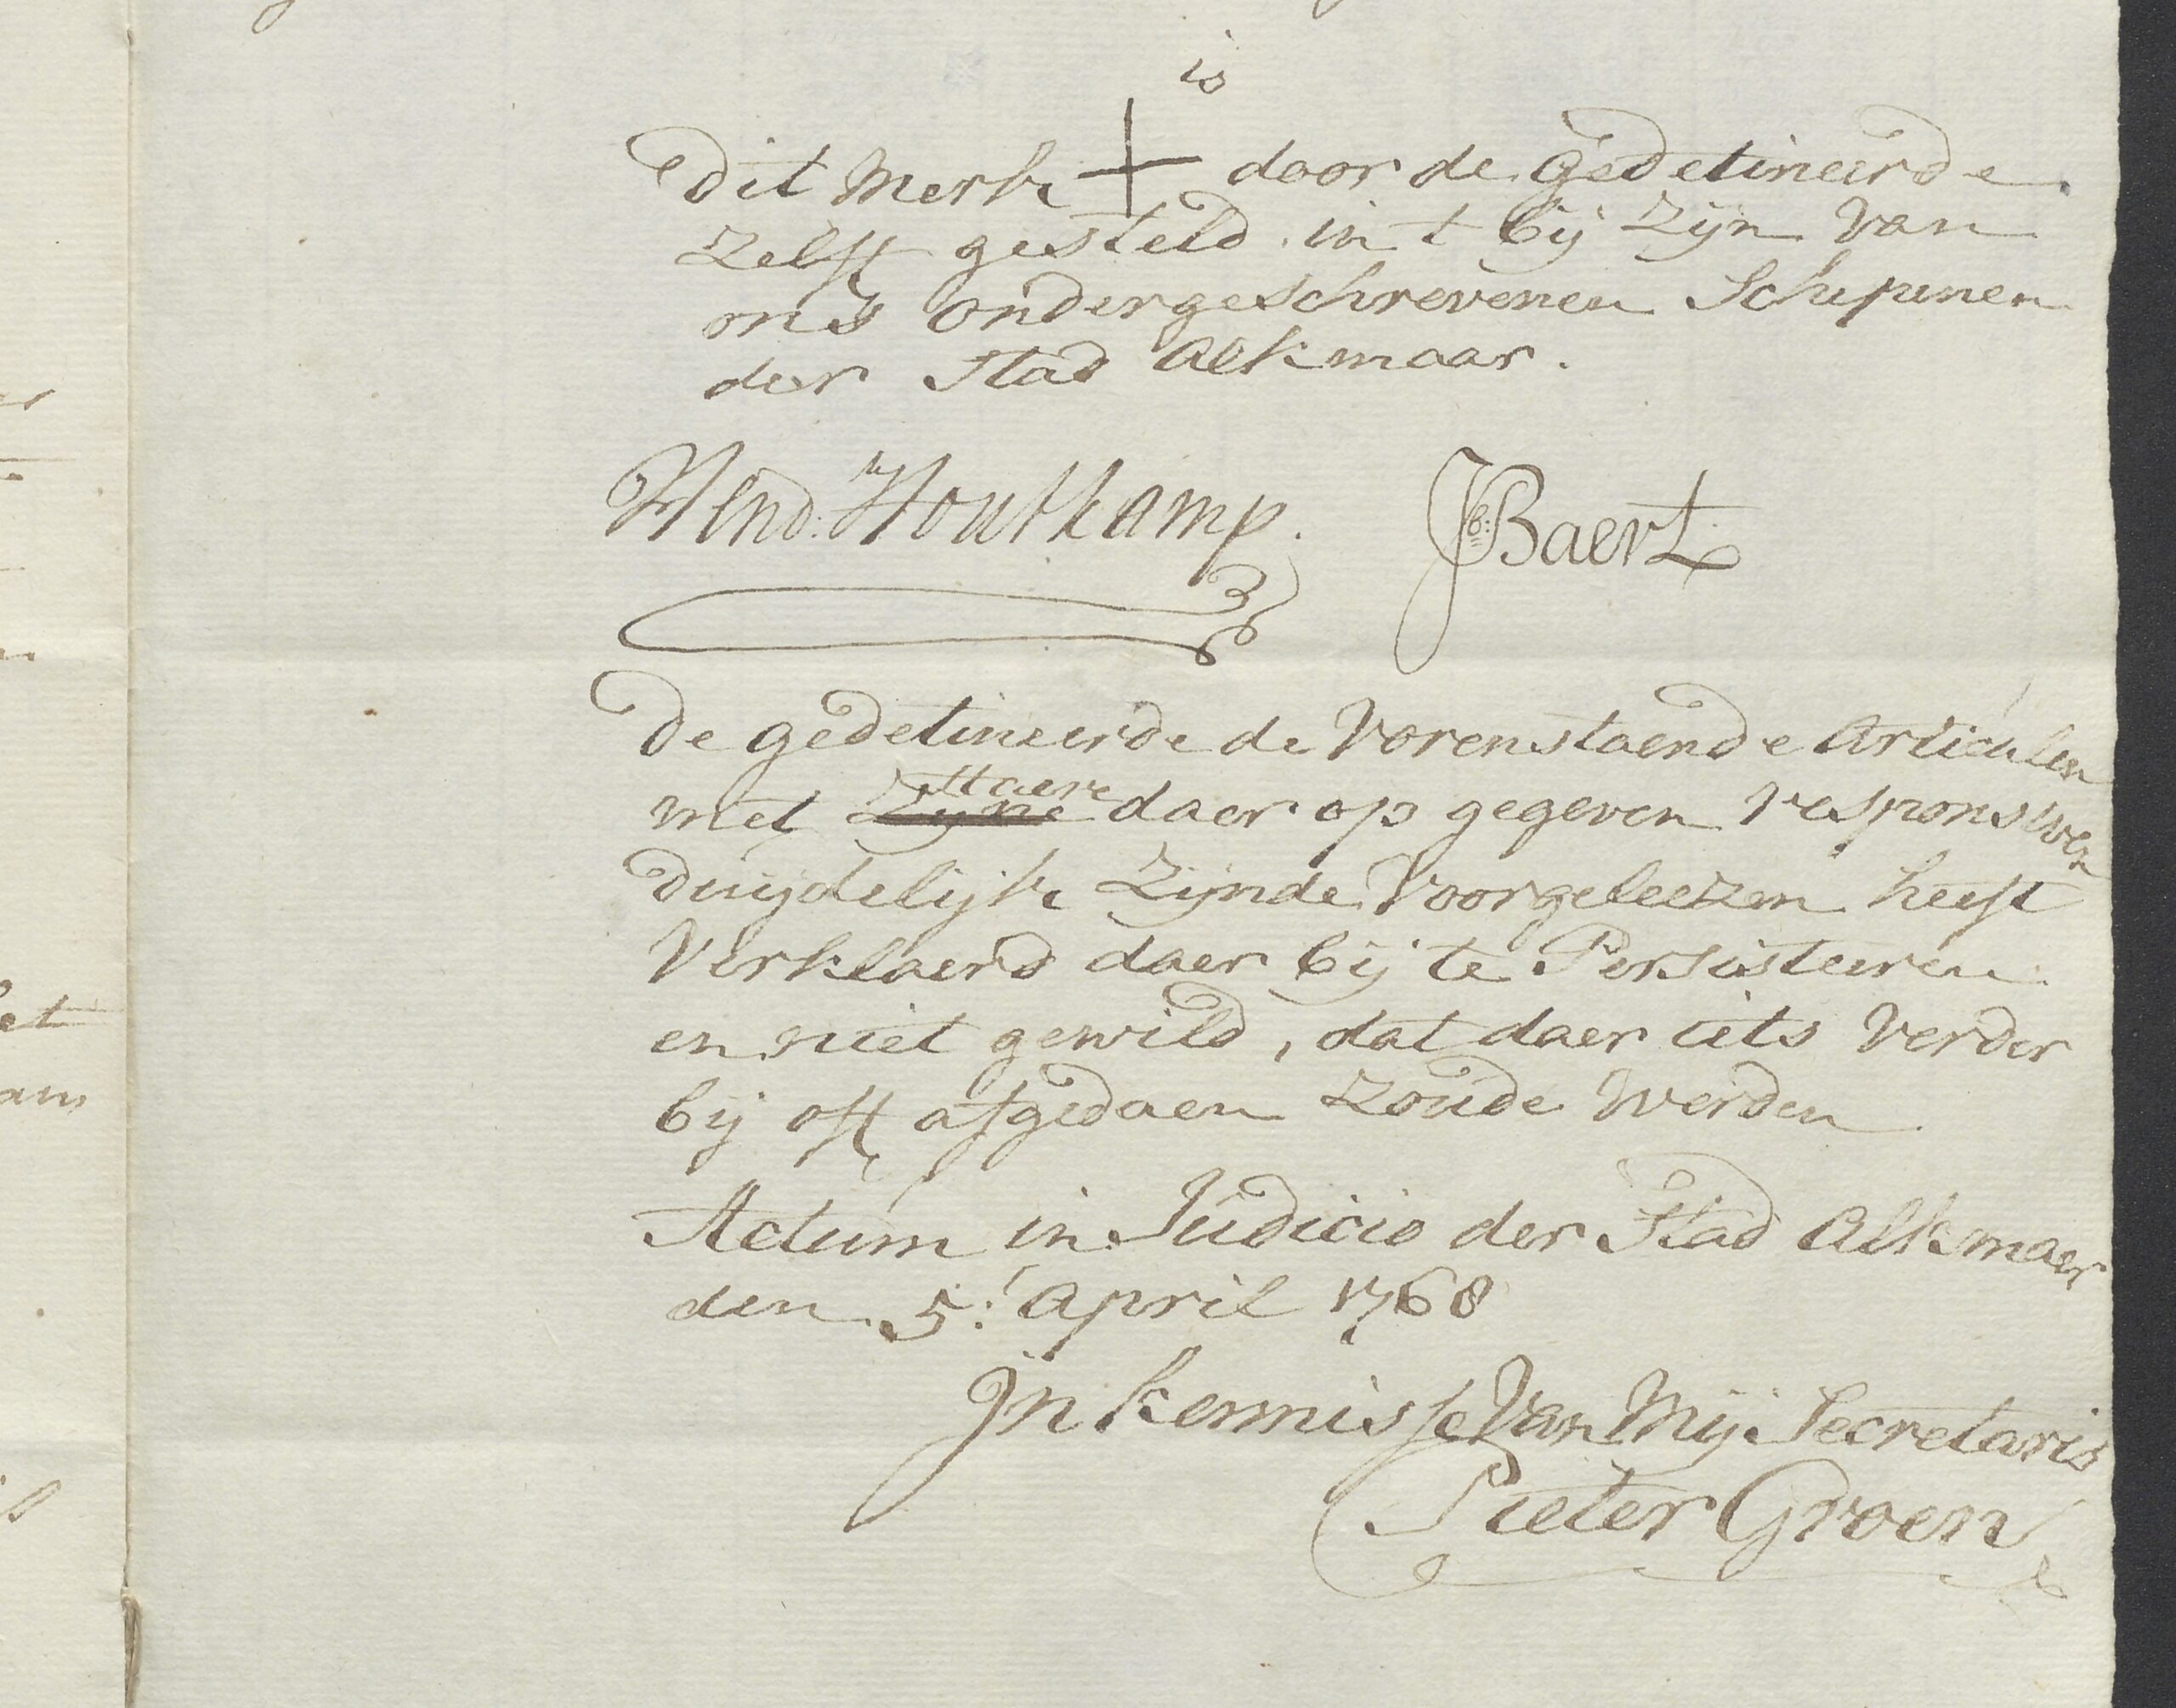 is
Dit Merk + door de gedetineerde
zelfs gesteld in t bij zijn van
ons ondergeschrevenen Schepenen
der Stad Alkmaar.
Hend: Houtkamp. Jb: Baert
De gedetineerde de vorenstaende Articulen
haere
met Zyne daer op gegeven responsiven
duijdelijk zijnde voorgeleezen heeft
verklaerd daer bij te Persisteeren
en niet gewild, dat daer iets verder
bij off afgedaen zoude werden
Actum in Judicio der Stad Alkmaer
den 5: April 1768
In kennisse van Mij Secretaris
Pieter Groen
et